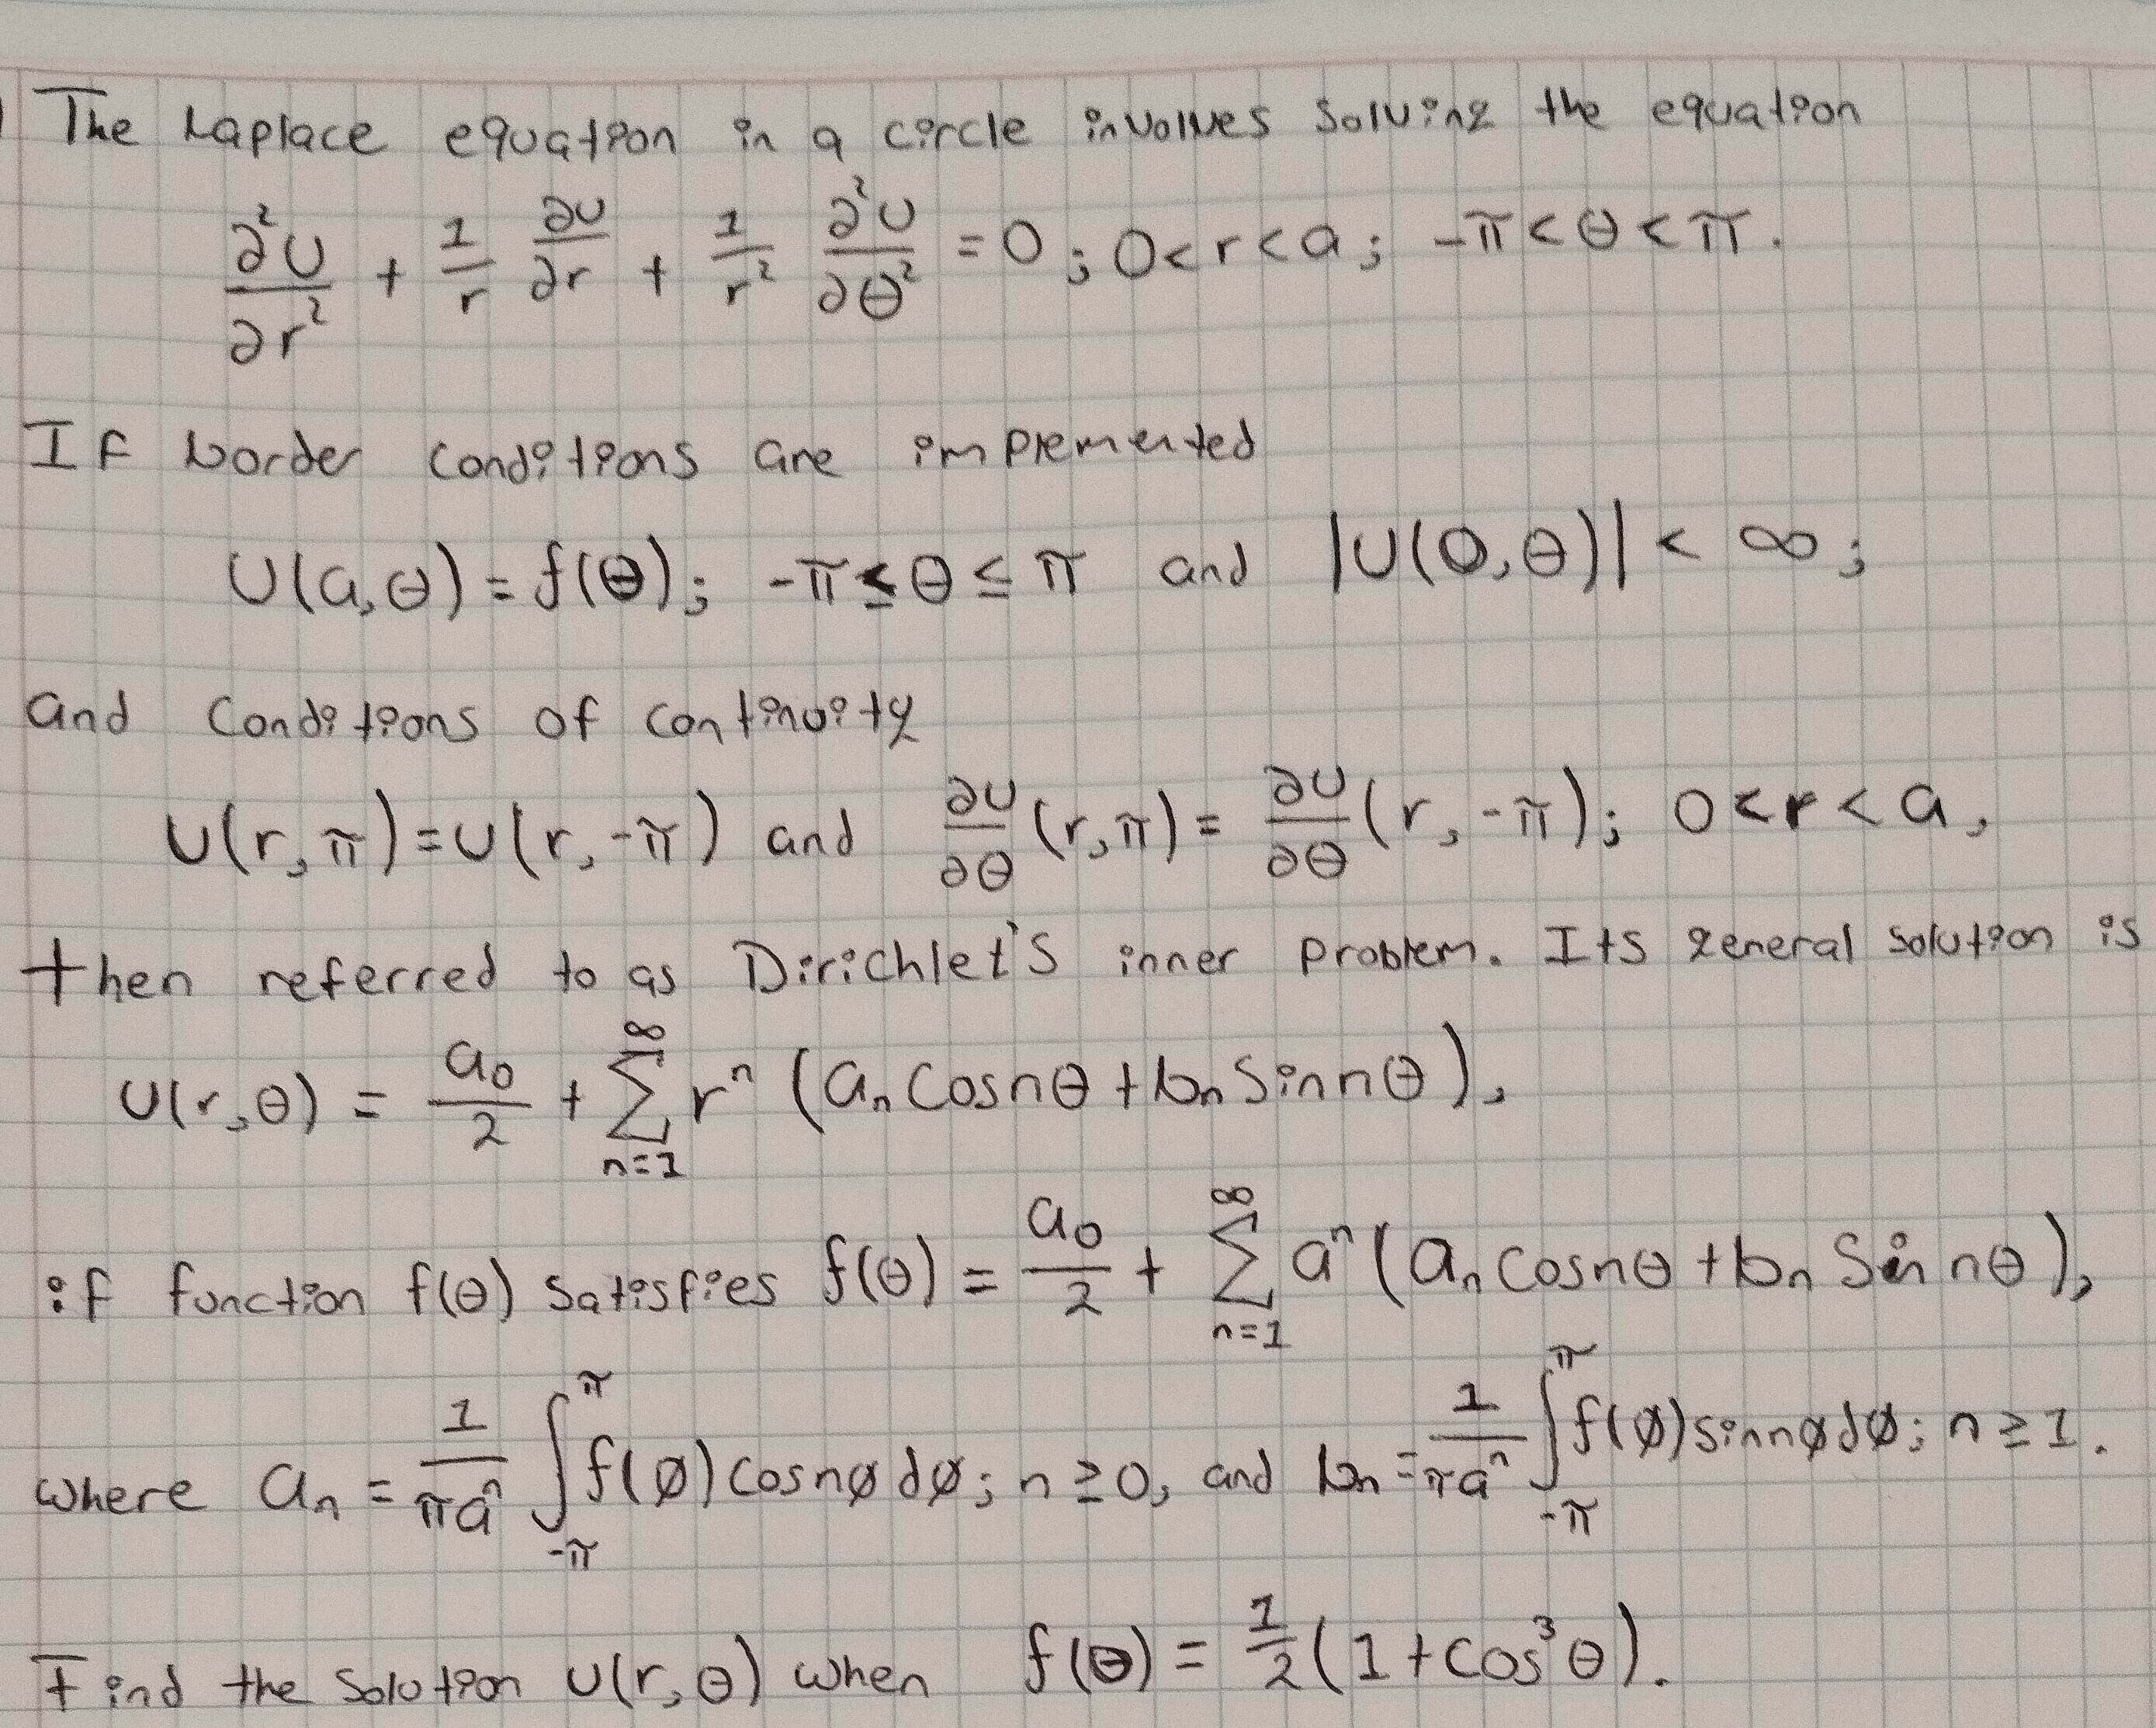 The Laplace equation in a circle involves solving the equation
∂²U/∂r² + 1/r ∂U/∂r + 1/r² ∂²U/∂θ² = 0; 0<r<a; -π<θ<π.
If border conditions are implemented
U(a,θ) = f(θ); -π≤θ≤π and |U(0,θ)| < ∞;
and conditions of continuity
U(r,π)=U(r,-π) and ∂U/∂θ (r,π) = ∂U/∂θ (r,-π); 0<r<a,
then referred to as Dirichlet's inner problem. Its general solution is
U(r,θ) = a₀/2 + ∑_{n=1}^{∞} rⁿ (aₙ cos nθ + bₙ sin nθ),
if function f(θ) satisfies f(θ) = a₀/2 + ∑_{n=1}^{∞} aⁿ (aₙ cos nθ + bₙ sin nθ),
where aₙ = 1/(πaⁿ) ∫_{-π}^{π} f(ø) cos nø dø; n≥0, and bₙ = 1/(πaⁿ) ∫_{-π}^{π} f(ø) sin nø dø; n≥1.
Find the solution U(r,θ) when f(θ) = 1/2 (1+cos³θ).